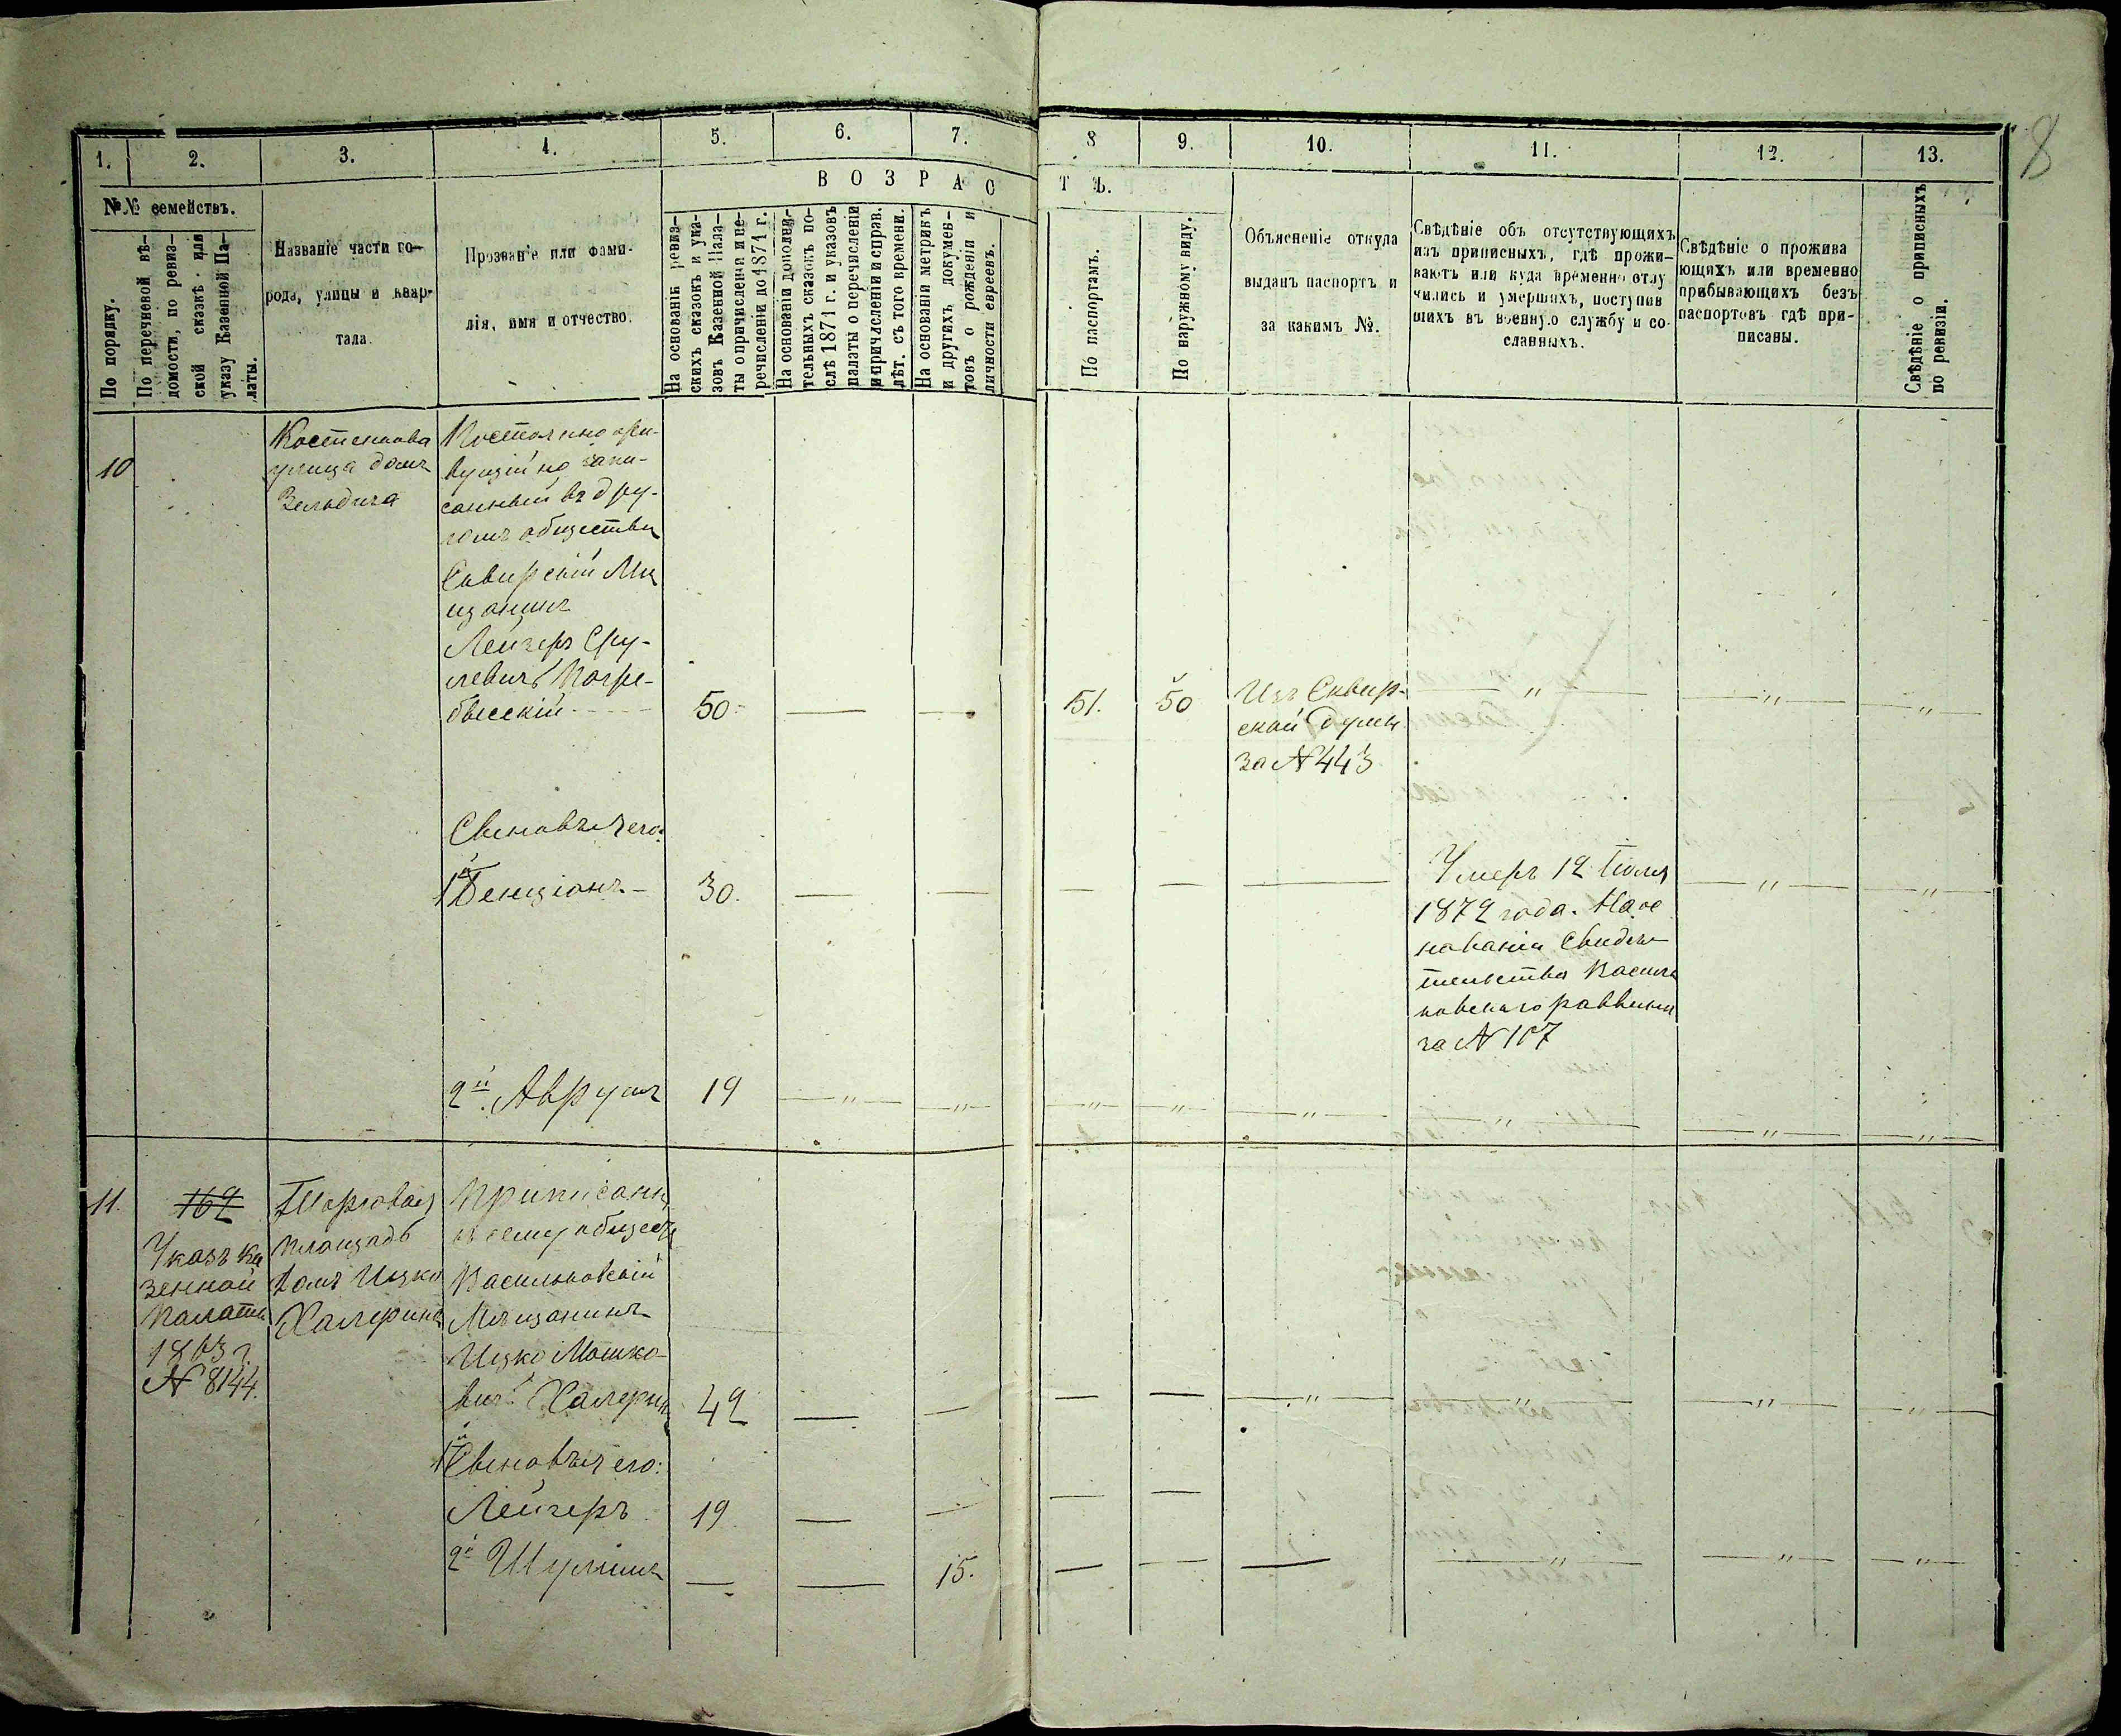 8
1.
2.
3.
4.
5.
6.
7.
8
9.
10.
11.
12.
13.
В О З Р А С Т Ъ.
№№ семействъ.
По порядку.
По перечневой вѣ-
домости, по ревиз-
ской сказкѣ или
указу Казенной Па-
латы.
Названіе части го-
рода, улицы и квар-
тала.
Прозваніе или фами-
лія, имя и отчество.
На основаніи ревиз-
скихъ сказокъ и ука-
зовъ Казенной Пала-
ты о причисленія и пе-
речисленіи до 1871 г.
На основаніи дополни-
тельныхъ сказокъ по-
слѣ 1871 г. и указовъ
палаты о перечисленіи
и причисленіи и справ.
лѣт. съ того времени.
На основаніи метрикъ
и другихъ докумен-
товъ о рожденіи и
личности евреевъ.
По паспортамъ.
По наружному виду.
Объясненіе откуда
выданъ паспортъ и
за какимъ №.
Свѣдѣніе объ отсутствующихъ
изъ приписныхъ, гдѣ прожи-
ваютъ или куда временно отлу
чились и умершихъ, поступив
шихъ въ военную службу и со-
сланныхъ.
Свѣдѣніе о прожива
ющихъ или временно
прибывающихъ безъ
паспортовъ гдѣ при-
писаны.
Свѣдѣніе о приписныхъ
по ревизіи.
10
Костельнова
улица домъ
Зельдича
Постоянно жи-
вущій но запи-
санный въ дру-
гомъ обществѣ
Сквирскій Мѣ
щанинъ
Лейзеръ Сру-
левичъ Погре-
быскій
50
51.
50
Изъ Сквир-
ской думы
за № 443
Сыновья его:
1й Бенціонъ
30.
Умеръ 12 Іюля
1872 года. На ос
нованіи Свидѣ-
тельства Василь
ковскаго раввина
за № 107
2й. Аврумъ
19
11.
162
Указъ Ка
зенной
Палаты
1863 г.
№ 8144.
Торговая
площадь
домъ Ицко
Халерина
Приписанн
къ сему обществ
Васильковскій
Мѣщанинъ
Ицко Мошко-
вичъ Халерин
42
1й Сыновья его:
Лейзеръ
19
2й Шулимъ
15.